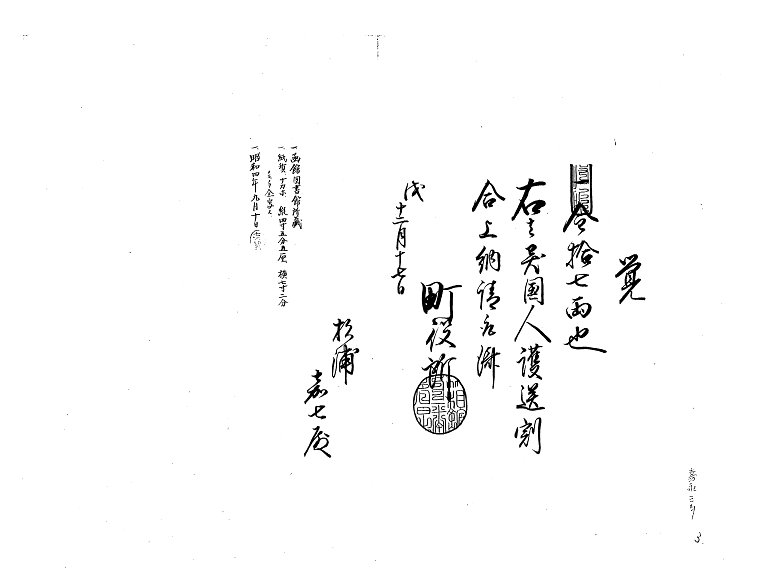 覚
金拾七両也
右之異国人護送割
合上納請取済
戌十二月十七日
町役所
松浦
嘉七殿
一、函館図書館所蔵
一、紙質 縦四寸五分五厘 横七寸二分
一、昭和四年九月十日
3